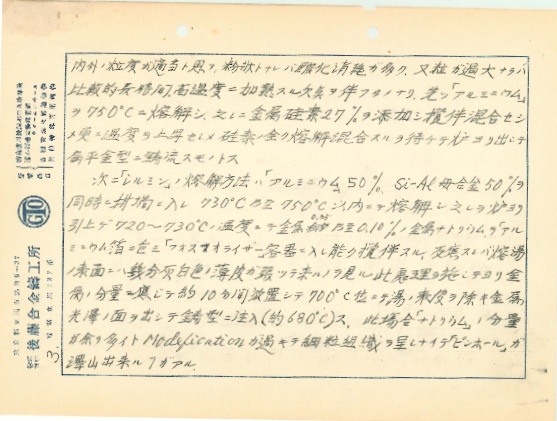 内外ノ粒度ガ適当ト思フ、粉状トナレバ酸化消耗ガ多ク、又粒ガ過大ナラバ
比較的長時間、高温度ニ加熱スル欠点ヲ伴フカラナリ、先ヅ「アルミニウム」
ヲ750°Cニ熔解シ、之レニ金属硅素27%ヲ添加シ攪伴混合セシ
メ更ニ温度ヲ上昇セシメ硅素ノ全ク熔解混合スルヲ待ッテ炉ヨリ出シテ
扁平金型ニ鋳流スモノトス
次ニ「シルミン」ノ熔解方法ハ「アルミニウム」50%、Si-Al母合金50%ヲ
同時ニ坩堝ニ入レ730°C乃至750°C以内ニテ熔解シ之レヲ炉ヨリ
引上ゲ720〜730°Cノ温度ニテ金属0.05乃至0.10%ノ金属ナトリウムヲアル
ミニウム箔ニ包ミ「フォスホライザー」容器ニ入レ能ク攪伴スル、反応スレバ熔湯
ノ表面ニハ幾分灰白色ノ薄皮ガ張ッテ来ルノヲ見ル、此処理ヲ施シテヨリ金
属ノ分量ニ応ジテ約10分間放置シテ700°C位ニテ湯ノ表皮ヲ除キ金属
光澤ノ面ヲ出シテ鋳型ニ注入(約680°C)ス、此場合「ナトリウム」ノ分量
ガ余リ多イト Modefication ガ過ギテ細粒組織ヲ呈シナイデ「ピンホール」ガ
澤山出来ルヿガアル
GTO
後藤合金鋳工所
3.